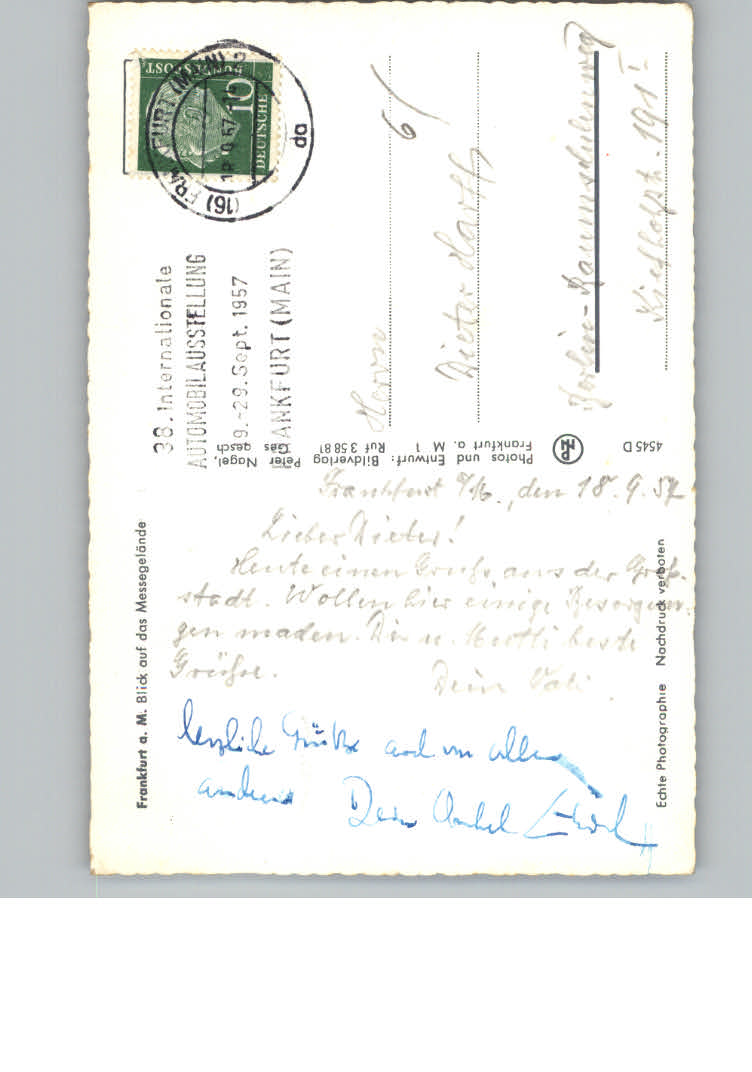 Frankfurt a. M. Blick auf das Messegelände
Frankfurt a/M., den 18.9.57
Lieber Dieter!
Heute einen Gruß aus der Groß-
stadt. Wollen hier einige Besorgun-
gen machen. Dir u. Mutti beste
Grüße.
Dein Vati
herzliche Grüße auch von allen
anderen Dein Onkel
Echte Photographie Nachdruck verboten
Photos und Entwurf: Bildverlag Peter Nagel,
Frankfurt a. M 1 Ruf 3 58 81 Ges. gesch.
4545 D
38. Internationale
AUTOMOBILAUSSTELLUNG
9.-29. Sept. 1957
FRANKFURT (MAIN)
(16) FRANKFURT (MAIN) 2
18.9.57
da
DEUTSCHE
BUNDESPOST
10
6/
Herrn
Dieter
Berlin-Baumschulenweg
Kiefholzstr. 191 I